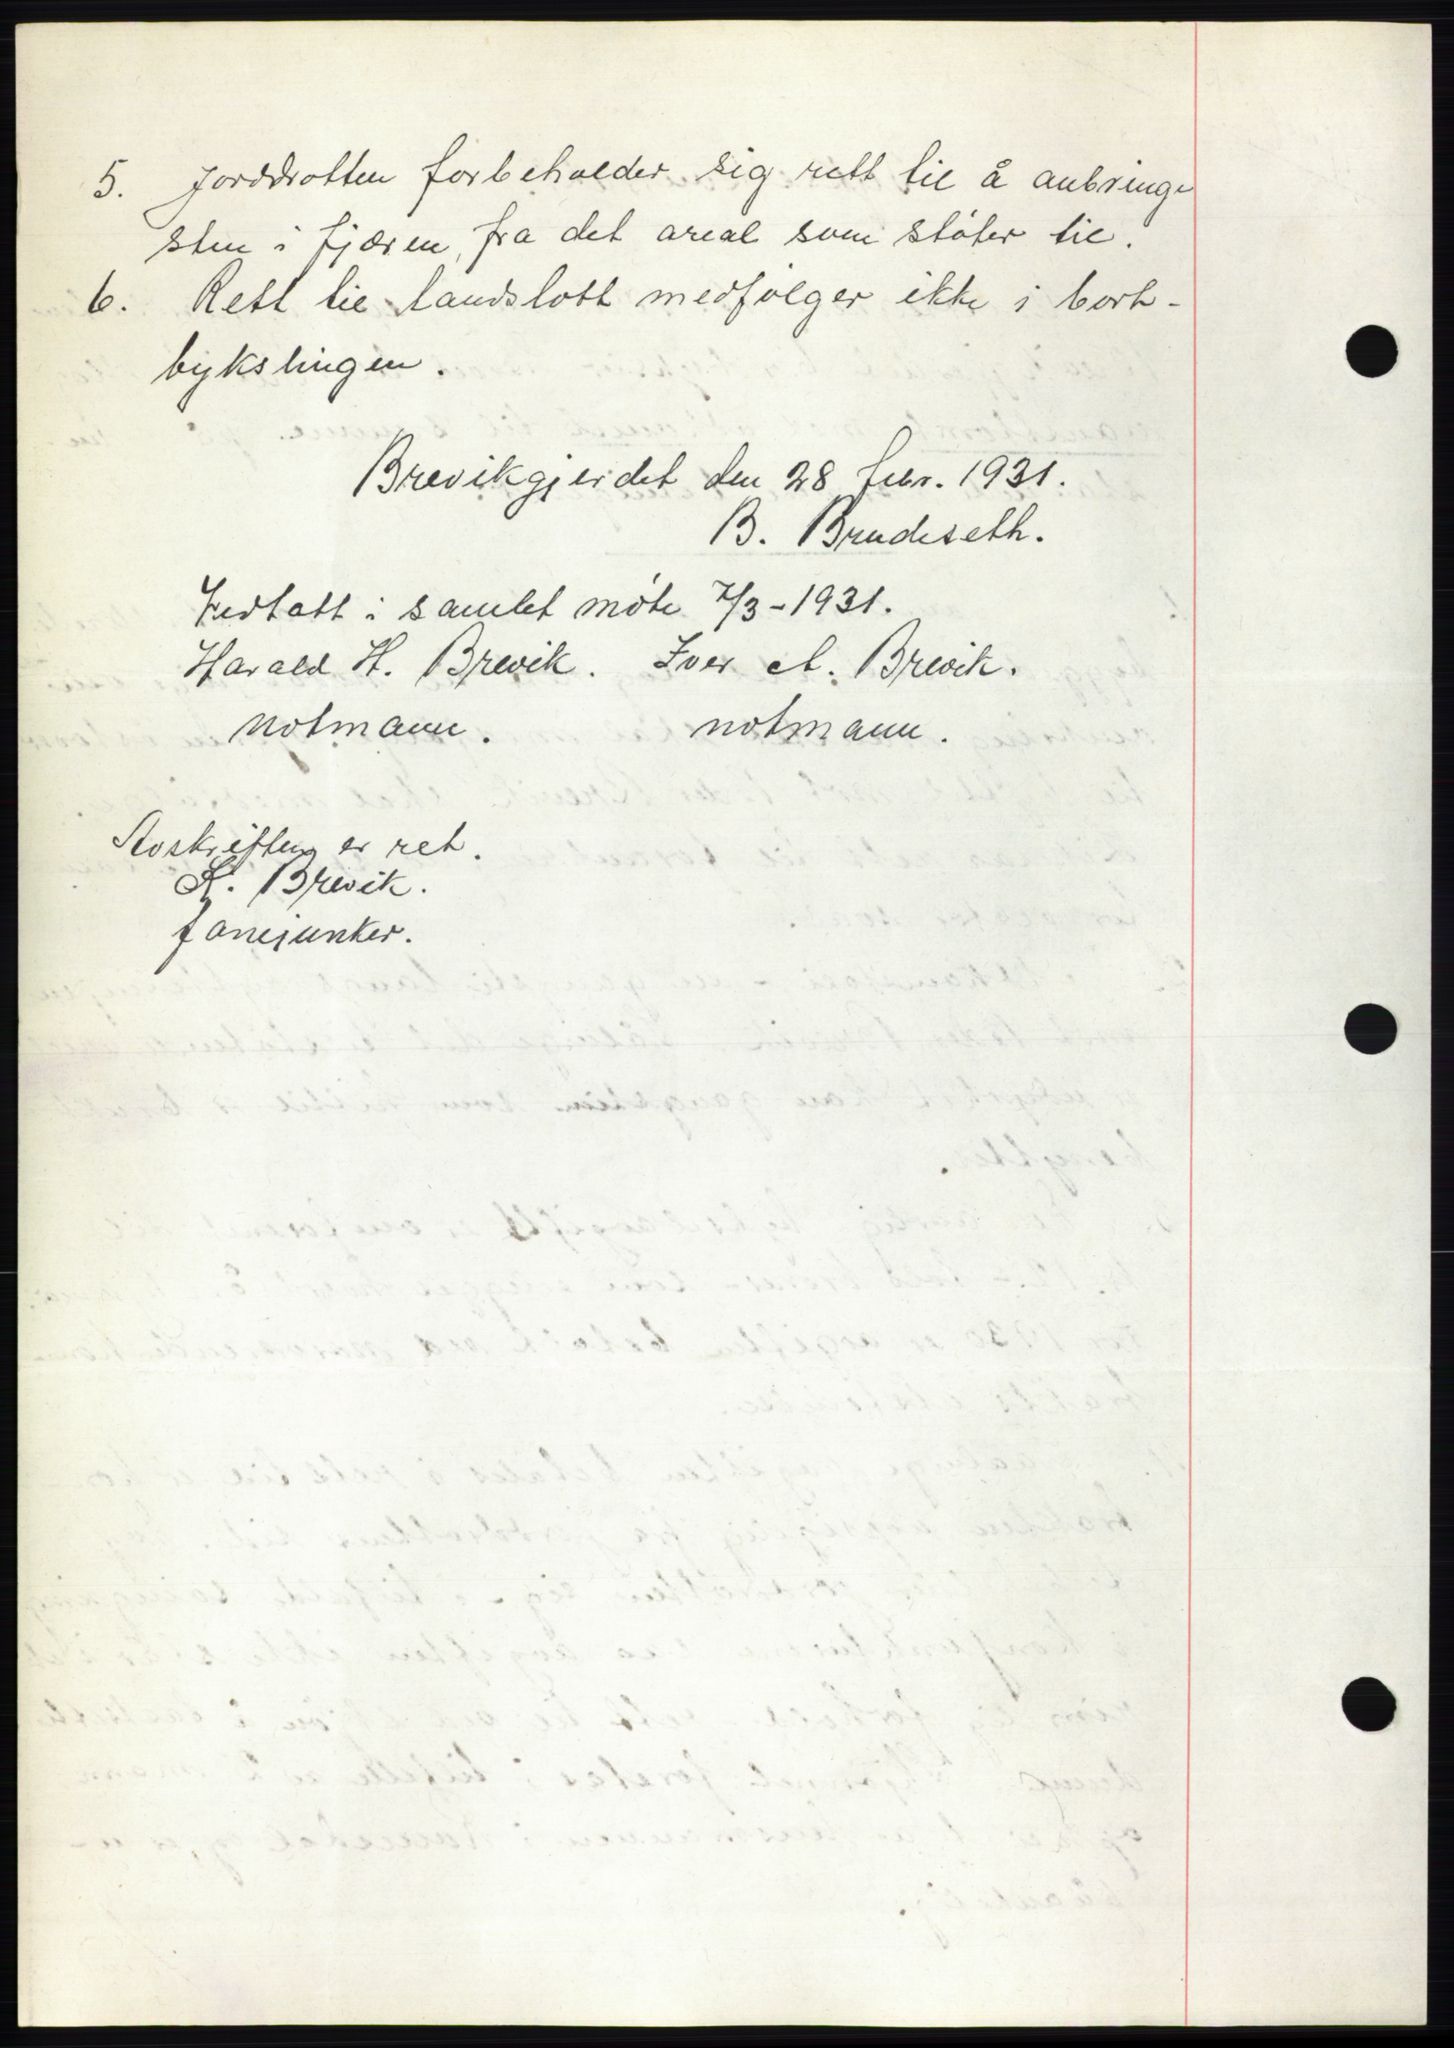 5. Jorddrotten forbeholder sig rett til å anbringe
sten i fjæren, fra det areal som støter til.
6. Rett til landslott medfølger ikke i bort-
bykslingen.
Brevikgjerdet den 28 febr. 1931.
B. Brudeseth.
Vedtatt i samlet møte 7/3-1931.
Harald H. Brevik. Iver A. Brevik.
notmann. notmann.
Avskriften er ret.
K. Brevik.
fanejunker.